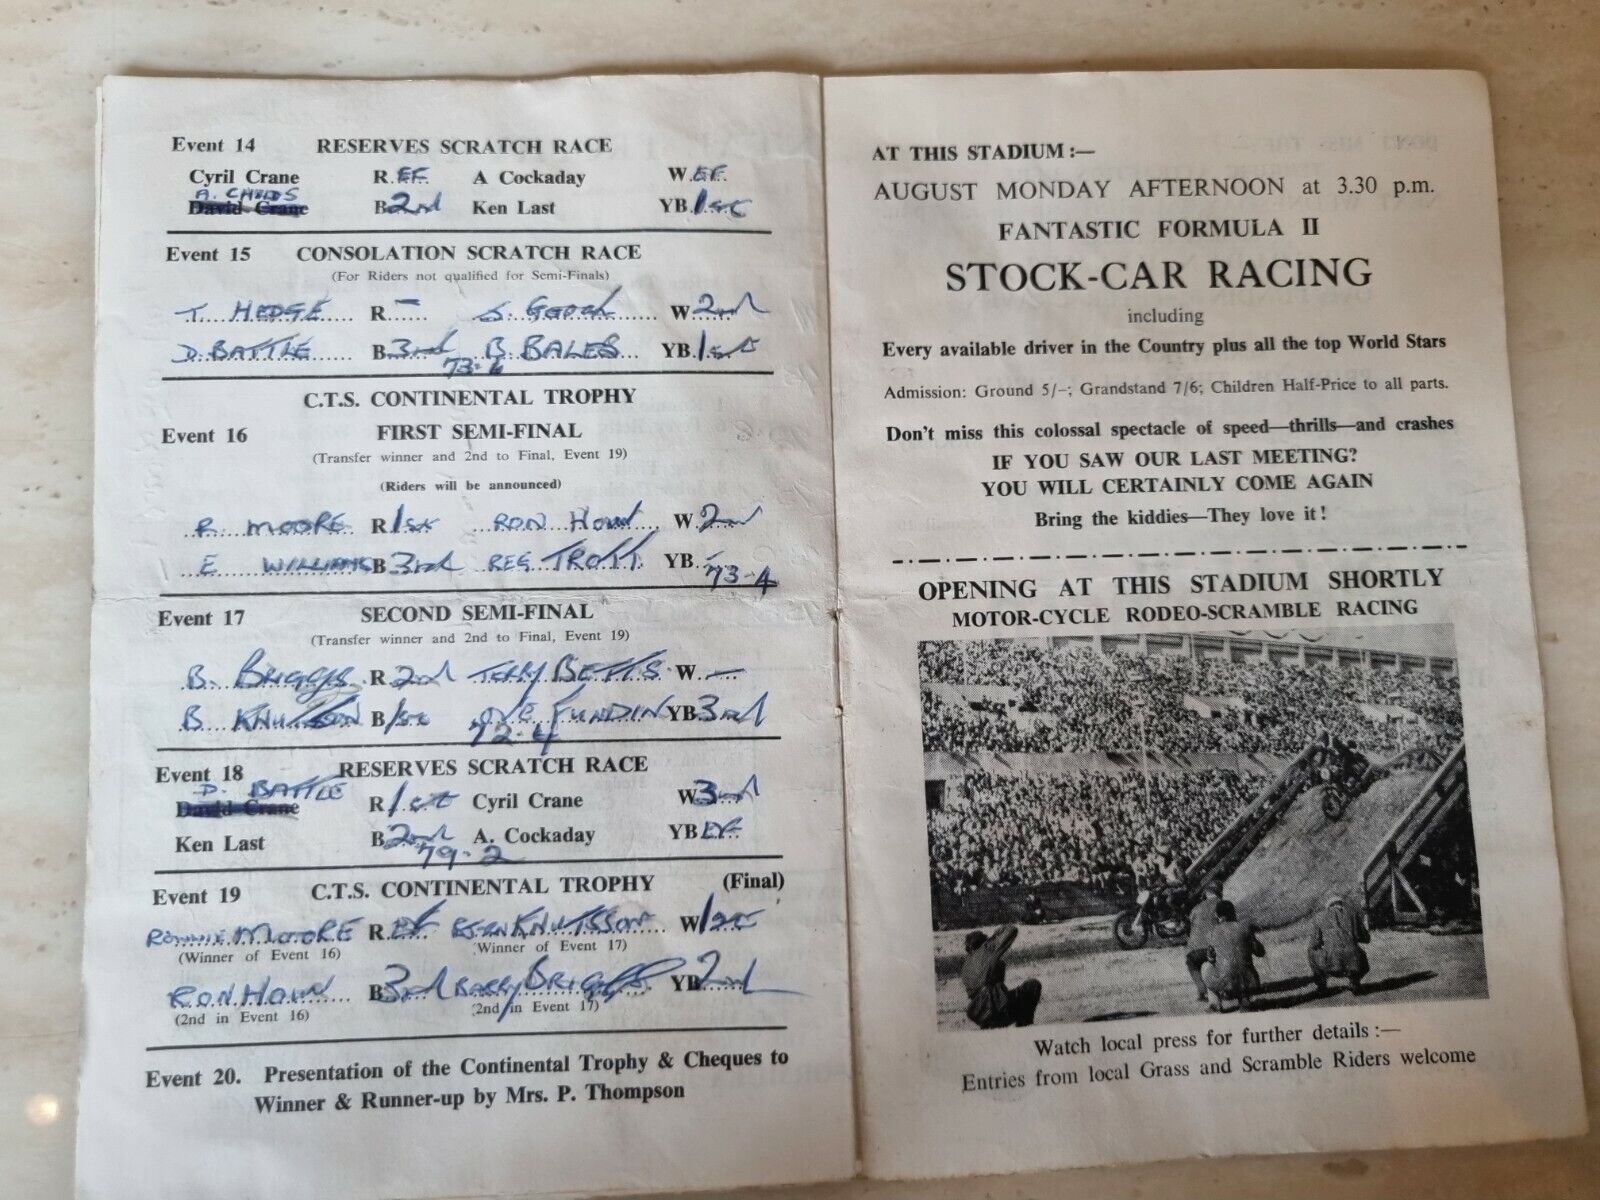 Event 14 RESERVES SCRATCH RACE
Cyril Crane R. EF. A Cockaday W. EF.
A. CHILDS
David Crane B 2nd Ken Last YB 1st
Event 15 CONSOLATION SCRATCH RACE
(For Riders not qualified for Semi-Finals)
T. HEDGE R – S. GOOCH W 2nd
D. BATTLE B 3rd B. BALES YB 1st
C.T.S. CONTINENTAL TROPHY
Event 16 FIRST SEMI-FINAL
(Transfer winner and 2nd to Final, Event 19)
(Riders will be announced)
R. MOORE R 1st RON HOW W 2nd
E WILLIAMS B 3rd REG TROTT YB –
73-4
Event 17 SECOND SEMI-FINAL
(Transfer winner and 2nd to Final, Event 19)
B. BRIGGS R 2nd TERRY BETTS W –
B KNUTSON B 1st OVE FUNDIN YB 3rd
72-4
Event 18 RESERVES SCRATCH RACE
D. BATTLE
David Crane R 1st Cyril Crane W 3rd
Ken Last B 2nd A. Cockaday YB EF.
79-2
Event 19 C.T.S. CONTINENTAL TROPHY (Final)
RONNIE MOORE R EF BJORN KNUTSSON W 1st
(Winner of Event 16) (Winner of Event 17)
RON HOW B 3rd BARRY BRIGGS YB 2nd
(2nd in Event 16) (2nd in Event 17)
Event 20. Presentation of the Continental Trophy & Cheques to
Winner & Runner-up by Mrs. P. Thompson
AT THIS STADIUM :—
AUGUST MONDAY AFTERNOON at 3.30 p.m.
FANTASTIC FORMULA II
STOCK-CAR RACING
including
Every available driver in the Country plus all the top World Stars
Admission: Ground 5/-; Grandstand 7/6; Children Half-Price to all parts.
Don't miss this colossal spectacle of speed—thrills—and crashes
IF YOU SAW OUR LAST MEETING?
YOU WILL CERTAINLY COME AGAIN
Bring the kiddies—They love it !
OPENING AT THIS STADIUM SHORTLY
MOTOR-CYCLE RODEO-SCRAMBLE RACING
Watch local press for further details :—
Entries from local Grass and Scramble Riders welcome